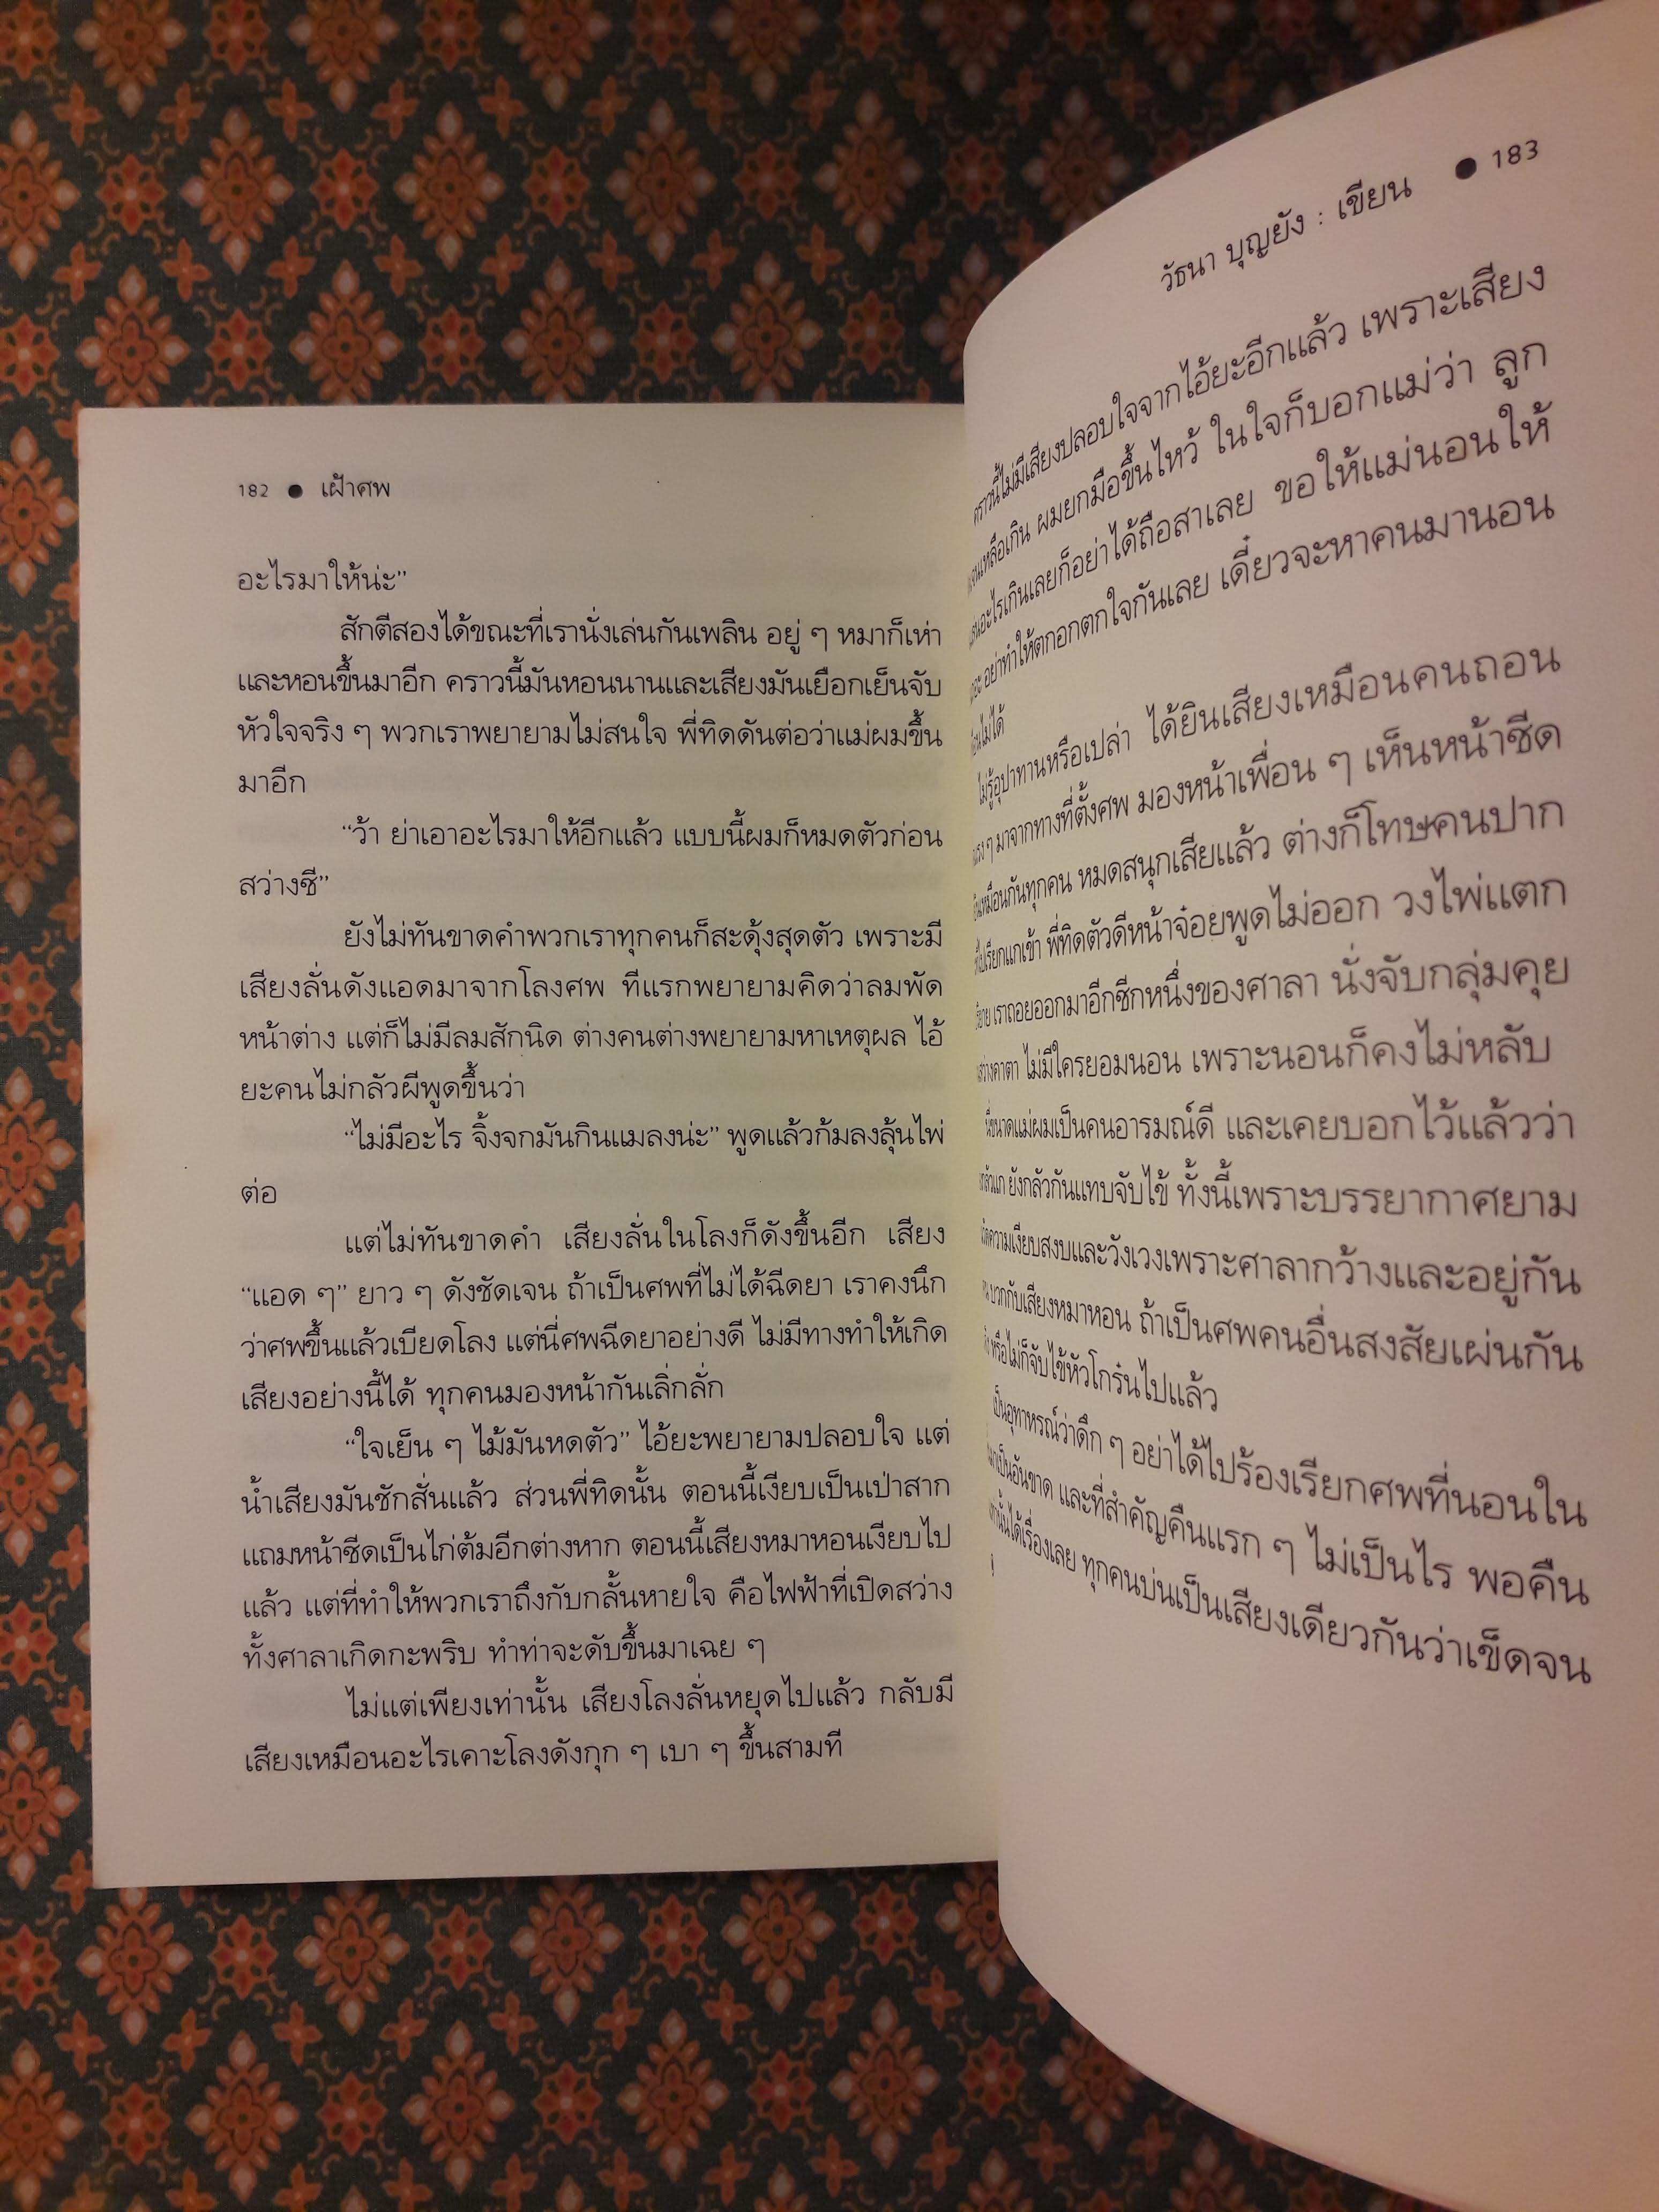 182 ● เฝ้าศพ
อะไรมาให้น่ะ”
สักตีสองได้ขณะที่เรานั่งเล่นกันเพลิน อยู่ ๆ หมาก็เห่า
และหอนขึ้นมาอีก คราวนี้มันหอนนานและเสียงมันเยือกเย็นจับ
หัวใจจริง ๆ พวกเราพยายามไม่สนใจ พี่ทิดดันต่อว่าแม่ผมขึ้น
มาอีก
“ว้า ย่าเอาอะไรมาให้อีกแล้ว แบบนี้ผมก็หมดตัวก่อน
สว่างซี”
ยังไม่ทันขาดคำพวกเราทุกคนก็สะดุ้งสุดตัว เพราะมี
เสียงลั่นดังแอดมาจากโลงศพ ทีแรกพยายามคิดว่าลมพัด
หน้าต่าง แต่ก็ไม่มีลมสักนิด ต่างคนต่างพยายามหาเหตุผล ไอ้
ยะคนไม่กลัวผีพูดขึ้นว่า
“ไม่มีอะไร จิ้งจกมันกินแมลงน่ะ” พูดแล้วก้มลงลุ้นไพ่
ต่อ
แต่ไม่ทันขาดคำ เสียงลั่นในโลงก็ดังขึ้นอีก เสียง
“แอด ๆ” ยาว ๆ ดังชัดเจน ถ้าเป็นศพที่ไม่ได้ฉีดยา เราคงนึก
ว่าศพขึ้นแล้วเบียดโลง แต่นี่ศพฉีดยาอย่างดี ไม่มีทางทำให้เกิด
เสียงอย่างนี้ได้ ทุกคนมองหน้ากันเลิ่กลั่ก
“ใจเย็น ๆ ไม้มันหดตัว” ไอ้ยะพยายามปลอบใจ แต่
น้ำเสียงมันชักสั่นแล้ว ส่วนพี่ทิดนั้น ตอนนี้เงียบเป็นเป่าสาก
แถมหน้าซีดเป็นไก่ต้มอีกต่างหาก ตอนนี้เสียงหมาหอนเงียบไป
แล้ว แต่ที่ทำให้พวกเราถึงกับกลั้นหายใจ คือไฟฟ้าที่เปิดสว่าง
ทั้งศาลาเกิดกะพริบ ทำท่าจะดับขึ้นมาเฉย ๆ
ไม่แต่เพียงเท่านั้น เสียงโลงลั่นหยุดไปแล้ว กลับมี
เสียงเหมือนอะไรเคาะโลงดังกุก ๆ เบา ๆ ขึ้นสามที
วัธนา บุญยัง : เขียน ● 183
คราวนี้ไม่มีเสียงปลอบใจจากไอ้ยะอีกแล้ว เพราะเสียง
เหลือเกิน ผมยกมือขึ้นไหว้ ในใจก็บอกแม่ว่า ลูก
อะไรเกินเลยก็อย่าได้ถือสาเลย ขอให้แม่นอนให้
อย่าทำให้ตกอกตกใจกันเลย เดี๋ยวจะหาคนมานอน
ไม่ได้
ไม่รู้อุปาทานหรือเปล่า ได้ยินเสียงเหมือนคนถอน
ๆ มาจากทางที่ตั้งศพ มองหน้าเพื่อน ๆ เห็นหน้าซีด
เหมือนกันทุกคน หมดสนุกเสียแล้ว ต่างก็โทษคนปาก
ไปเรียกแกเข้า พี่ทิดตัวดีหน้าจ๋อยพูดไม่ออก วงไพ่แตก
เราถอยออกมาอีกซีกหนึ่งของศาลา นั่งจับกลุ่มคุย
สว่างคาตา ไม่มีใครยอมนอน เพราะนอนก็คงไม่หลับ
นี่ขนาดแม่ผมเป็นคนอารมณ์ดี และเคยบอกไว้แล้วว่า
ยังกลัวกันแทบจับไข้ ทั้งนี้เพราะบรรยากาศยาม
ความเงียบสงบและวังเวงเพราะศาลากว้างและอยู่กัน
บวกกับเสียงหมาหอน ถ้าเป็นศพคนอื่นสงสัยเผ่นกัน
หรือไม่ก็จับไข้หัวโกร๋นไปแล้ว
เป็นอุทาหรณ์ว่าดึก ๆ อย่าได้ไปร้องเรียกศพที่นอนใน
เป็นอันขาด และที่สำคัญคืนแรก ๆ ไม่เป็นไร พอคืน
ได้เรื่องเลย ทุกคนบ่นเป็นเสียงเดียวกันว่าเข็ดจน